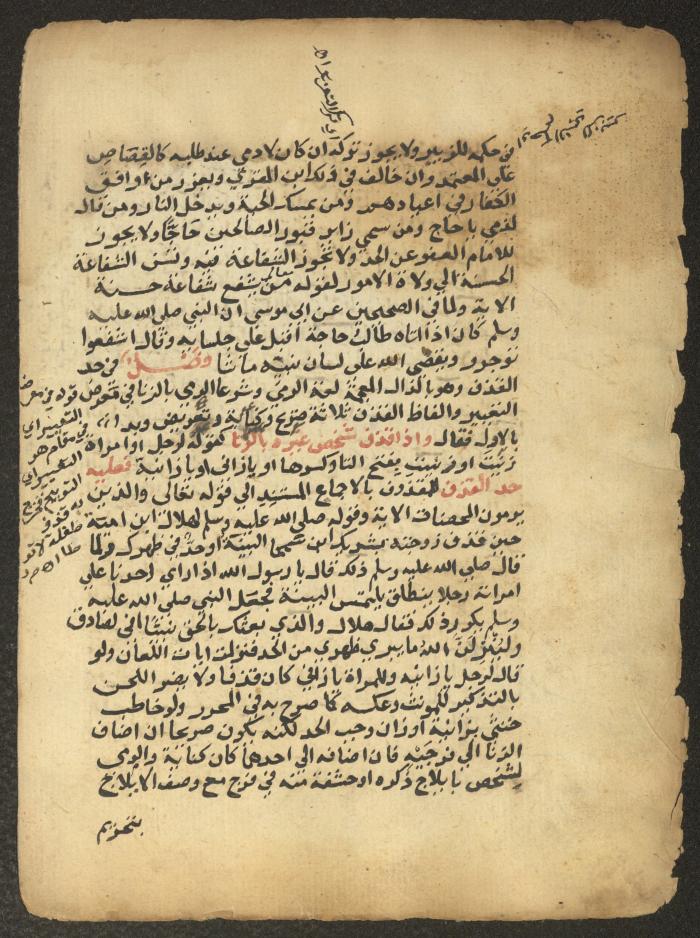 في حكمه للزبير ولا يجوز تركه ان كان لادمي عند طلبه كالقصاص
علي المعتمد وان خالف في ذلك ابن المقري ويعزر من اوافق
الكفار في اعيادهم ومن يمسك الحية ويدخل النار ومن قال
لذمي يا حاج ومن سمي زاير قبور الصالحين حاجا ولا يجوز
للامام العفو عن الحد ولا تجوز الشفاعة فيه وتسن الشفاعة
الحسنة الي ولاة الامور لقوله تعالي من يشفع شفاعة حسنة
الاية ولما في الصحيحين عن ابي موسي ان النبي صلي الله عليه
وسلم كان اذا اتاه طالب حاجة اقبل علي جلسايه وقال اشفعوا
توجروا ويقضي الله علي لسان نبيه ما شا فصل في حد
القذف وهو بالذال المعجمة لغة الرمي وشرعا الرمي بالزنا في معرض
التعيير والفاظ القذف ثلاثة صريح وكناية وتعريض وبدا
بالاول فقال واذا قذف شخص غيره بالزنا كقوله لرجل او امراة
زنيت او زنيت بفتح التا وكسرها او يا زاني او يا زانية فعليه
حد القذف للمقذوف بالاجماع المستند الي قوله تعالي والذين
يرمون المحصنات الاية وقوله صلي الله عليه وسلم لهلال ابن امية
حين قذف زوجته بشريك ابن سحما البينة او حد في ظهرك ولما
قال صلي الله عليه وسلم ذلك قال يا رسول الله اذا راي احدنا علي
امراته رجلا ينطلق يلتمس البينة فجعل النبي صلي الله عليه
وسلم يكرر ذلك فقال هلال والذي بعثك بالحق نبيا اني لصادق
ولينزلن الله ما يبري ظهري من الحد فنزلت ايات اللعان ولو
قال لرجل يا زانيه وللمراة يا زاني كان قذفا ولا يضر اللحن
بالتذكير للمونث وعكسه كما صرح به في المحرر ولو خاطب
خنثي بزانية او زان وجب الحد لكنه يكون صريحا ان اضاف
الزنا الي فرجيه فان اضافه الي احدهما كان كناية والرمي
لشخص بايلاج ذكره او حشفة منه في فرج مع وصف الايلاج
بتحريم
قوله في معرض
التعيير اي
في مقام هو
التعيير اي
التوبيخ فخرج
به قذف
طفلة لا تو
طا اه م د